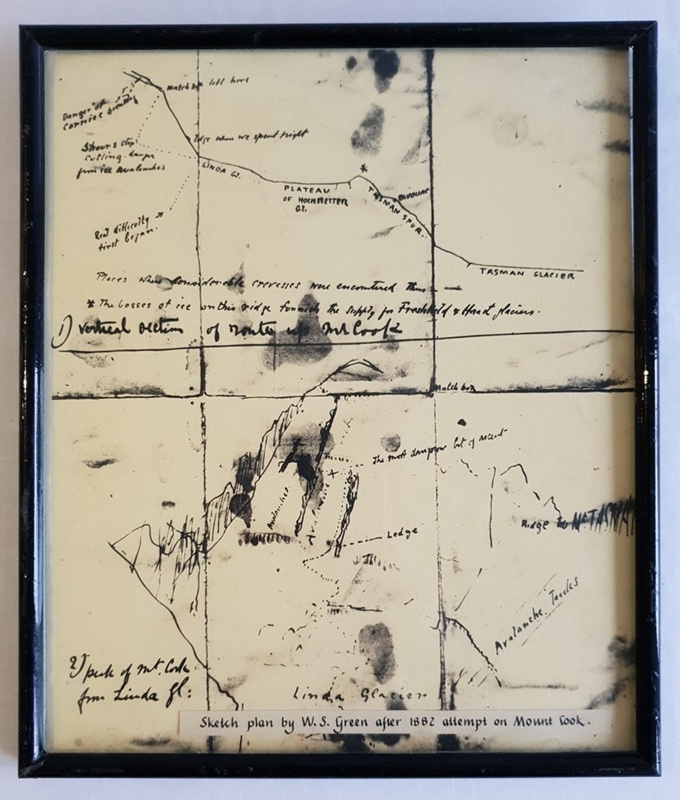 Match box left here
Danger of
cornice breaking
5 hours step
cutting. danger
from ice avalanches
Ledge where we spent night
LINDA Gl.
PLATEAU
OF HOCHSTETTER
Gl.
*
BIVOUAC
TASMAN SPUR.
Real difficulty
first began.
TASMAN GLACIER
Places where considerable crevasses were encountered thus
* The bosses of ice on this ridge furnish the supply for Freshfield & Haast glaciers.
1) Vertical Section of route up Mt Cook
Match box
The most dangerous bit of ascent
Avalanches
Ridge to Mt TASMAN
Ledge
Avalanche Tracks
2) peak of Mt Cook
from Linda Gl:
Linda Glacier
Sketch plan by W. S. Green after 1882 attempt on Mount Cook.